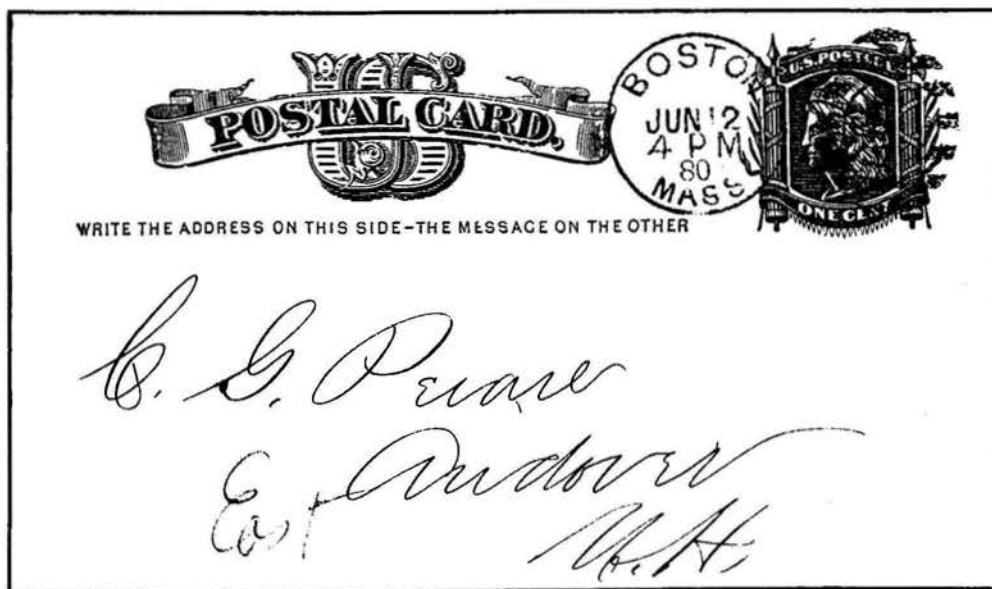 US
POSTAL CARD.
BOSTON
JUN 12
4 PM
80
MASS
U.S. POSTAGE
ONE CENT
WRITE THE ADDRESS ON THIS SIDE-THE MESSAGE ON THE OTHER
C. G.
East Andover
N. H.